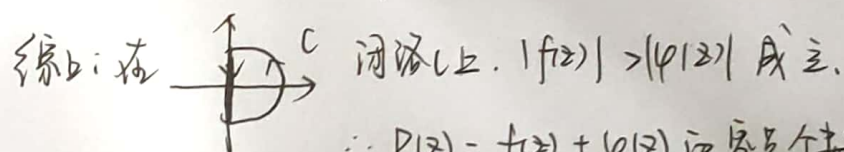 综上：在 C 闭路C上. |f(z)| > |φ(z)| 成立.
∴ P(z) = f(z) + φ(z) 的零点个